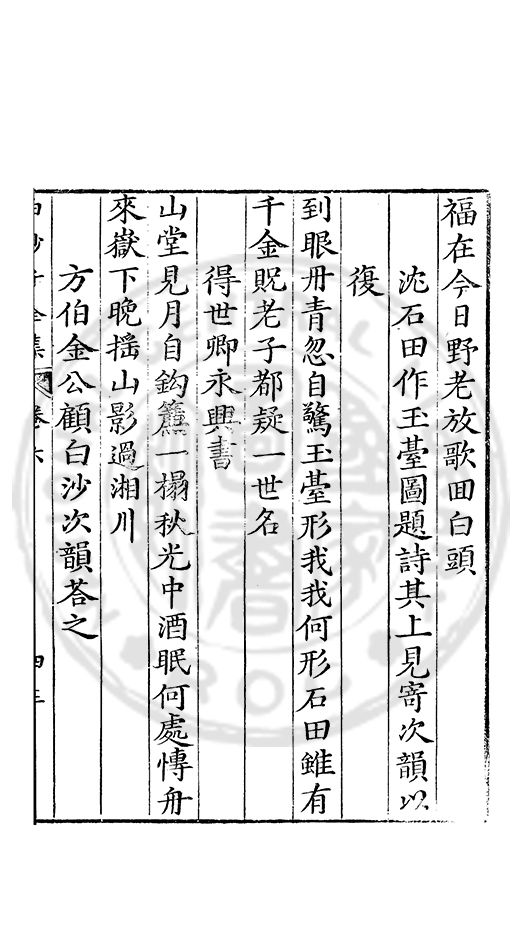 福在今日野老放歌回白頭
沈石田作玉臺圖題詩其上見寄次韻以
復
到眼丹青忽自驚玉臺形我我何形石田雖有
千金貺老子都疑一世名
得世卿永興書
山堂見月自鈎簾一榻秋光中酒眠何處慱舟
來嶽下晚摇山影過湘川
方伯金公顧白沙次韻荅之
白沙子全集
卷六
四三